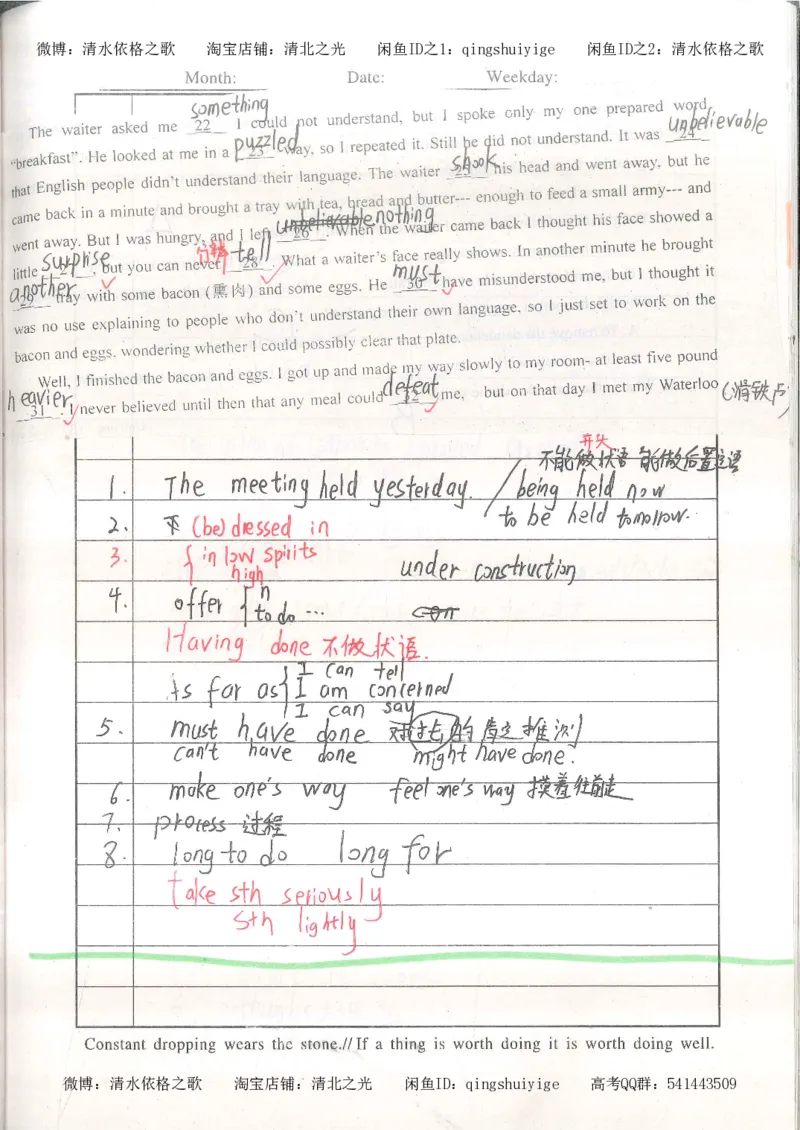 微博：清水依格之歌 淘宝店铺：清北之光 闲鱼ID之1：qingshuiyige 闲鱼ID之2：清水依格之歌
Month: Date: Weekday:
The waiter asked me something 22 I could not understand, but I spoke only my one prepared word
"breakfast". He looked at me in a puzzled 23 way, so I repeated it. Still he did not understand. It was unbelievable 24
that English people didn't understand their language. The waiter shook 25 his head and went away, but he
came back in a minute and brought a tray with tea, bread and butter--- enough to feed a small army--- and
went away. But I was hungry, and I left unbelievable nothing 26. When the waiter came back I thought his face showed a
little surprise 27, but you can never tell 28. What a waiter's face really shows. In another minute he brought
another 29 tray with some bacon (熏肉) and some eggs. He must 30 have misunderstood me, but I thought it
was no use explaining to people who don't understand their own language, so I just set to work on the
bacon and eggs, wondering whether I could possibly clear that plate.
Well, I finished the bacon and eggs. I got up and made my way slowly to my room- at least five pound
heavier 31. I never believed until then that any meal could defeat 32 me, but on that day I met my Waterloo (滑铁卢)
开头
不能做状语 能做后置定语
1. The meeting held yesterday. / being held now
to be held tomorrow.
2. (be) dressed in
3. { in low spirits
high
under construction
4. offer { n
to do ...
Having done 不做状语.
As far as { I can tell
I am concerned
I can say
5. must have done 对过去的肯定推测
can't have done might have done.
6. make one's way feel one's way 摸着往前走
7. process 过程
8. long to do long for
take sth seriously
sth lightly
Constant dropping wears the stone.// If a thing is worth doing it is worth doing well.
微博：清水依格之歌 淘宝店铺：清北之光 闲鱼ID：qingshuiyige 高考QQ群：541443509